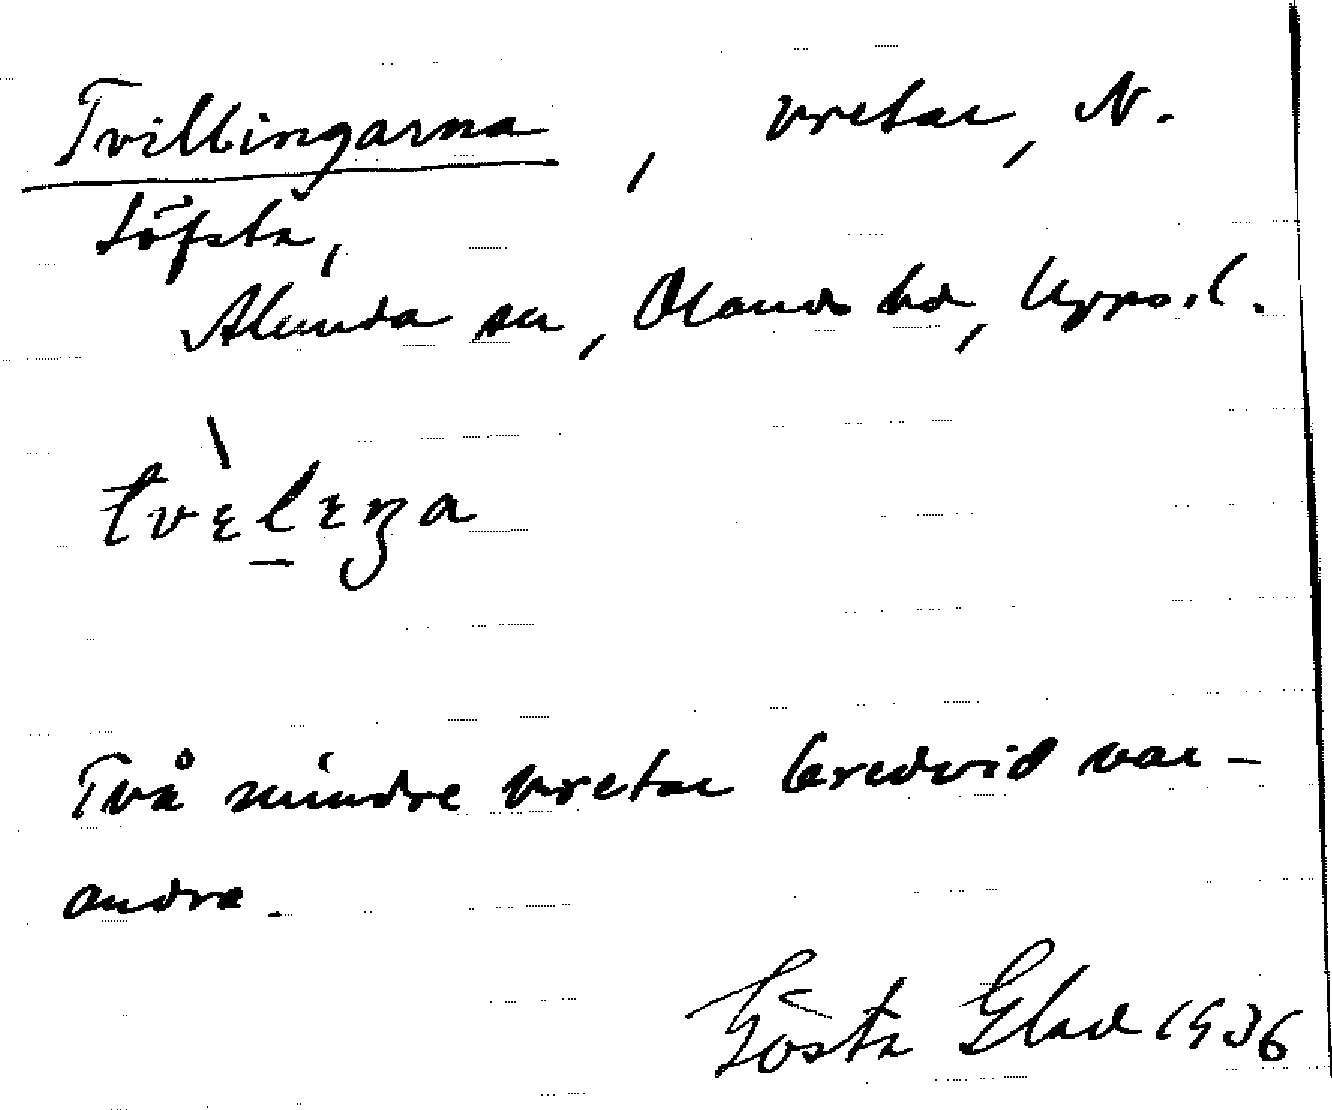 Tvillingarna, vretar, N.
Löfsta,
Alunda sn, Olands hd, Upps. l.
tvὲlɛŋa
Två mindre vretar bredvid var-
andra.
Gösta Glad 1936